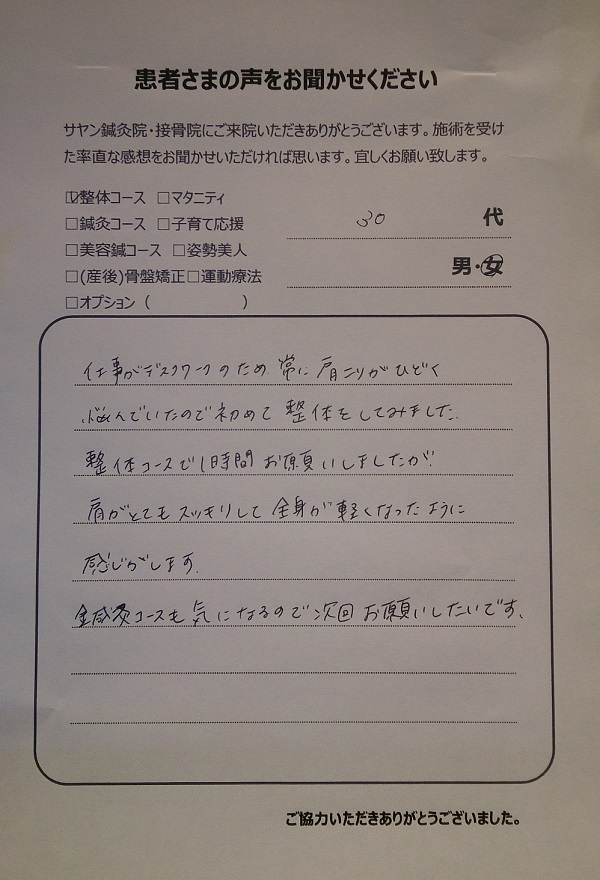 患者さまの声をお聞かせください
サヤン鍼灸院・接骨院にご来院いただきありがとうございます。施術を受け
た率直な感想をお聞かせいただければ思います。宜しくお願い致します。
☑整体コース □マタニティ
□鍼灸コース □子育て応援
30 代
□美容鍼コース □姿勢美人
男・女
□(産後)骨盤矯正□運動療法
□オプション（ ）
仕事がデスクワークのため 常に 肩コリがひどく
悩んでいたので初めて 整体をしてみました。
整体コースで1時間 お願いしましたが
肩がとてもスッキリして 全身が軽くなったように
感じがします。
鍼灸コースも 気になるので次回 お願いしたいです。
ご協力いただきありがとうございました。